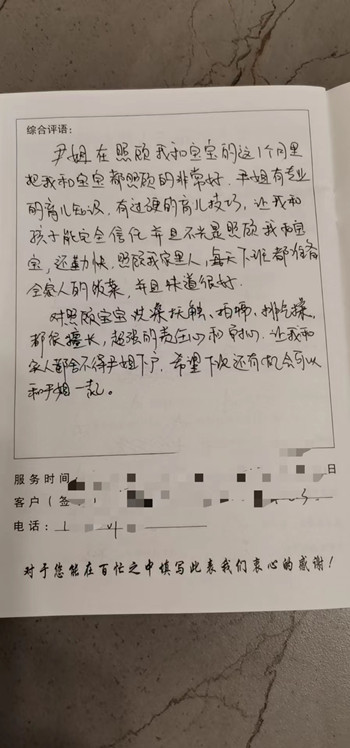 综合评语：
尹姐在照顾我和宝宝的这1个月里
把我和宝宝都照顾的非常好.尹姐有专业
的育儿知识.有过硬的育儿技巧，让我和
孩子能完全信任并且不光是照顾我和宝
宝，还勤快.照顾我家里人，每天下班都准备
全家人的饭菜，并且味道很好.
对照顾宝宝洗澡抚触、拍嗝、排气操
都很擅长，超强的责任心和耐心.让我和
家人都舍不得尹姐下户.希望下次还有机会可以
和尹姐一起。
服务时间：
日
客户（签
电话：
对于您能在百忙之中填写此表我们衷心的感谢！